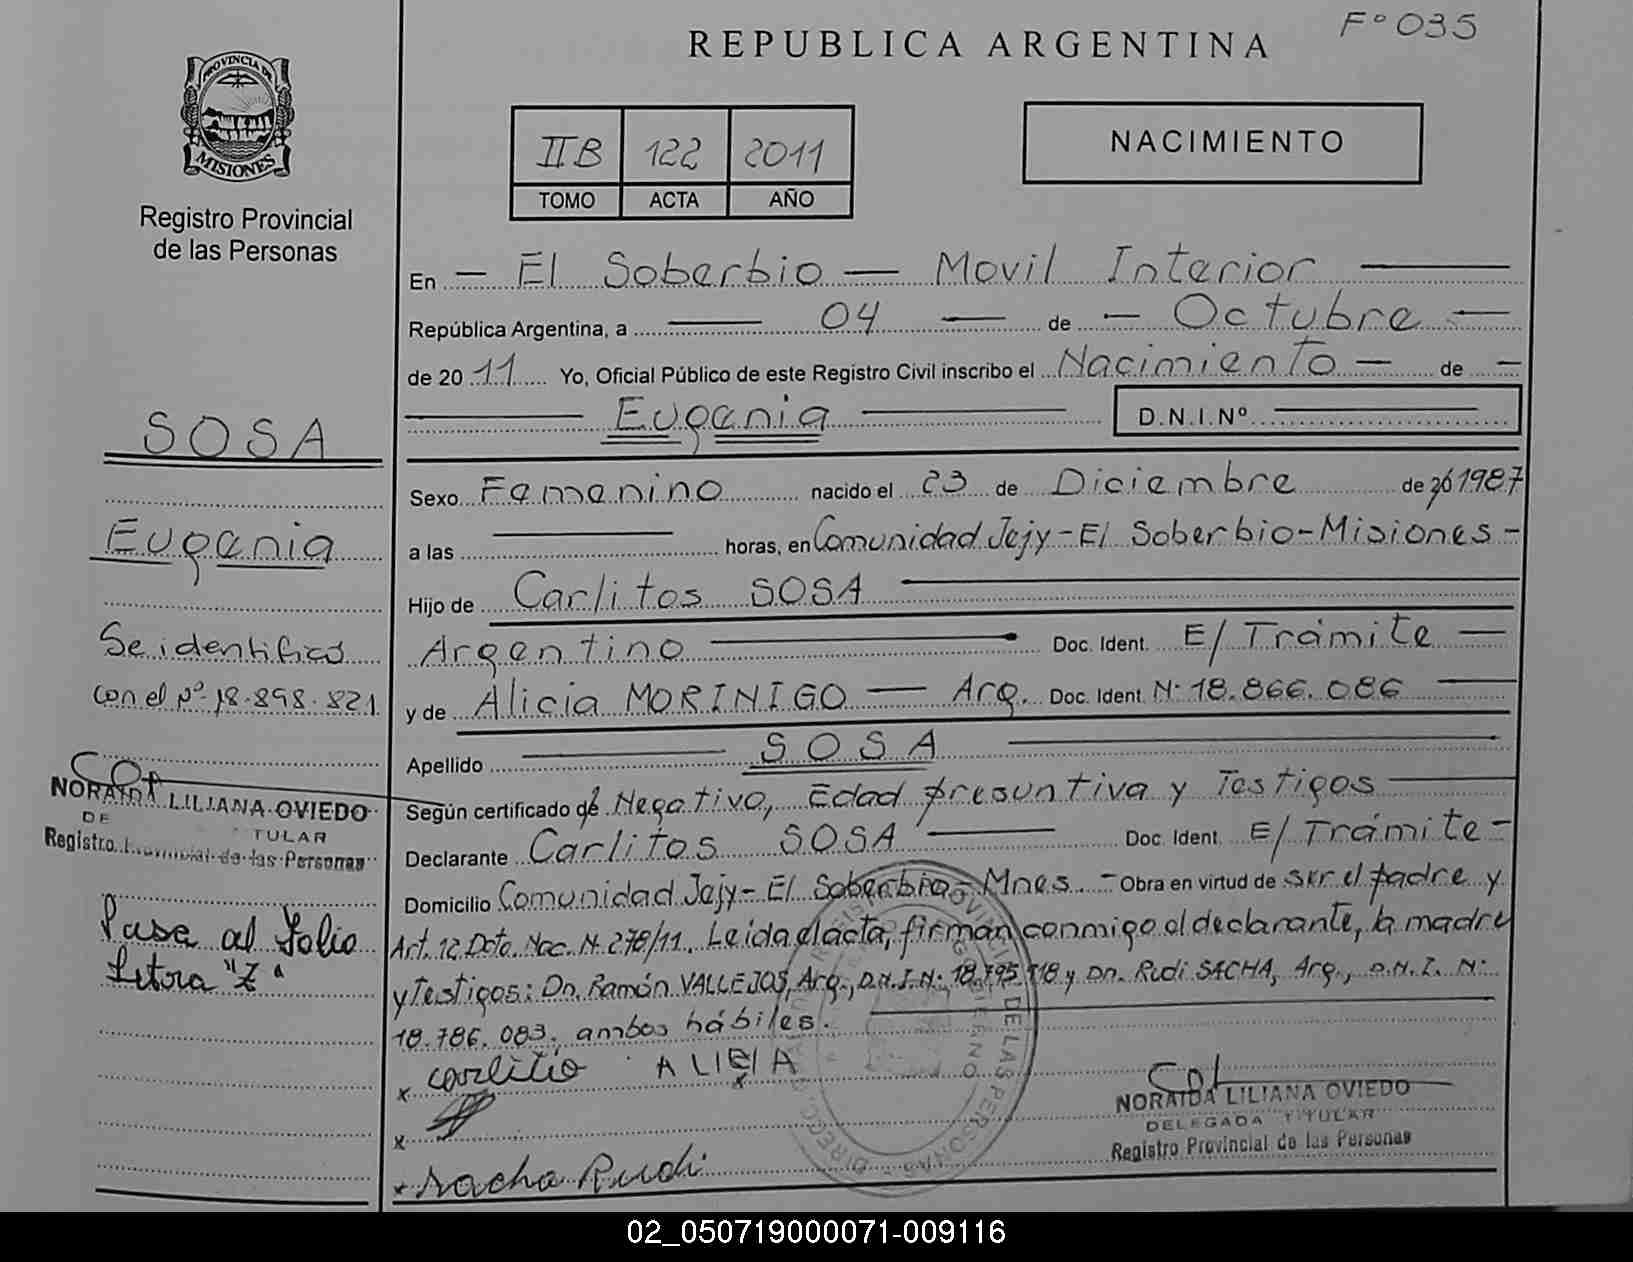 Fº 035
REPUBLICA ARGENTINA
PROVINCIA DE
MISIONES
Registro Provincial
de las Personas
IIB 122 2011
TOMO ACTA AÑO
NACIMIENTO
En — El Soberbio — Movil Interior —
República Argentina, a — 04 — de — Octubre —
de 20 11 Yo, Oficial Público de este Registro Civil inscribo el Nacimiento — de —
— Eugenia — D.N.I.Nº —
Sexo Femenino nacido el 23 de Diciembre de 20 1987
a las — horas, en Comunidad Jejy - El Soberbio - Misiones -
Hijo de Carlitos SOSA —
Argentino — Doc. Ident. E/ Trámite —
y de Alicia MORINIGO — Arg. Doc. Ident. N: 18.866.086 —
Apellido — SOSA —
Según certificado de Negativo, Edad presuntiva y Testigos —
Declarante Carlitos SOSA — Doc. Ident. E/ Trámite -
Domicilio Comunidad Jejy - El Soberbio - Mnes. - Obra en virtud de ser el padre y
Art. 12 Dcto. Nac. N. 278/11. Leida el acta, firman conmigo el declarante, la madre
y Testigos: Dn. Ramón VALLEJOS, Arg., D.N.I. N: 18.795.718 y Dn. Rudi SACHA, Arg., D.N.I. N:
18.786.083, ambos hábiles. —
x carlitio ALICIA
x
x
x sacha Rudi
NORAIDA LILIANA OVIEDO
DELEGADA TITULAR
Registro Provincial de las Personas
SOSA
Eugenia
Se identifico
con el Nº 18.898.821
NORAIDA LILIANA OVIEDO
DE TULAR
Registro Provincial de las Personas
Pasa al Folio
Letra "Z"
02_050719000071-009116